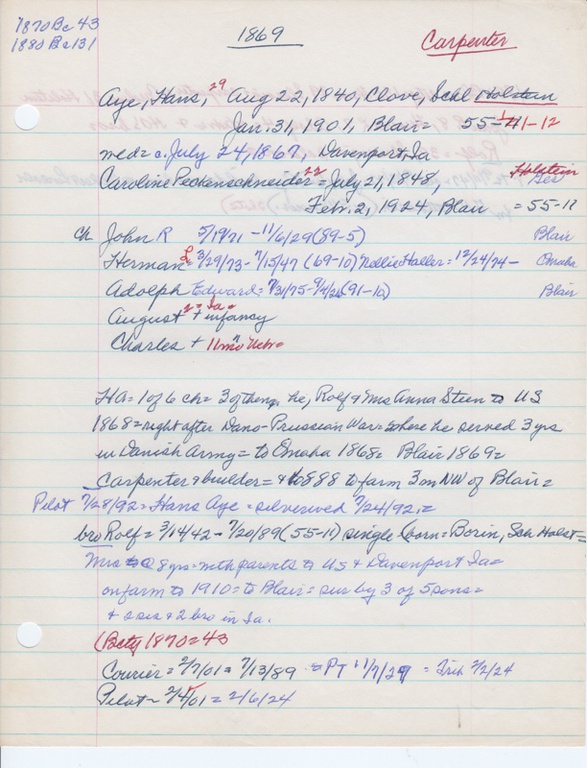 1870 Bc 43
1880 Bc 131
1869
Carpenter
Aye, Hans, 29 Aug 22, 1840, Clove, Schl Holstein
Jan. 31, 1901, Blair = 55-11-12
med = c. July 24, 1867, Davenport, Ia
Caroline Peckenschneider 22 = July 21, 1848, Holstein
Feb. 2, 1924, Blair = 55-11
ch John R 5/19/71 - 11/6/29 (89-5) Blair
Herman L 3/29/73 - 7/15/47 (69-10) Nellie Haller = 12/24/74 - Omaha
Adolph Edward = 7/31/75 - 9/4/26 (91-10) Blair
August + infancy
Charles + 11 mo Nebr =
HA = 1 of 6 ch = 3 of them, he, Rolf & Mrs Anna Steen to US
1868 = right after Dano-Prussian War = where he served 3 yrs
in Danish Army = to Omaha 1868 = Blair 1869 =
Carpenter & builder = & to 888 to farm 3 m NW of Blair =
Pilot 7/28/92 = Hans Aye = silverwed 7/24/92 =
bro Rolf = 3/14/42 - 7/20/89 (55-11) single born = Borin, Sch Holst =
Mrs to @ 8 yrs = with parents to US & Davenport Ia =
on farm to 1910 = to Blair = sur by 3 of 5 sons =
& a sis & 2 bro in Ia.
(Bcty 1870 = 43
Courier = 2/7/01 = 7/13/89 = PT 11/7/29 = Trib 2/2/24
Pilot = 2/4/01 = 2/6/24